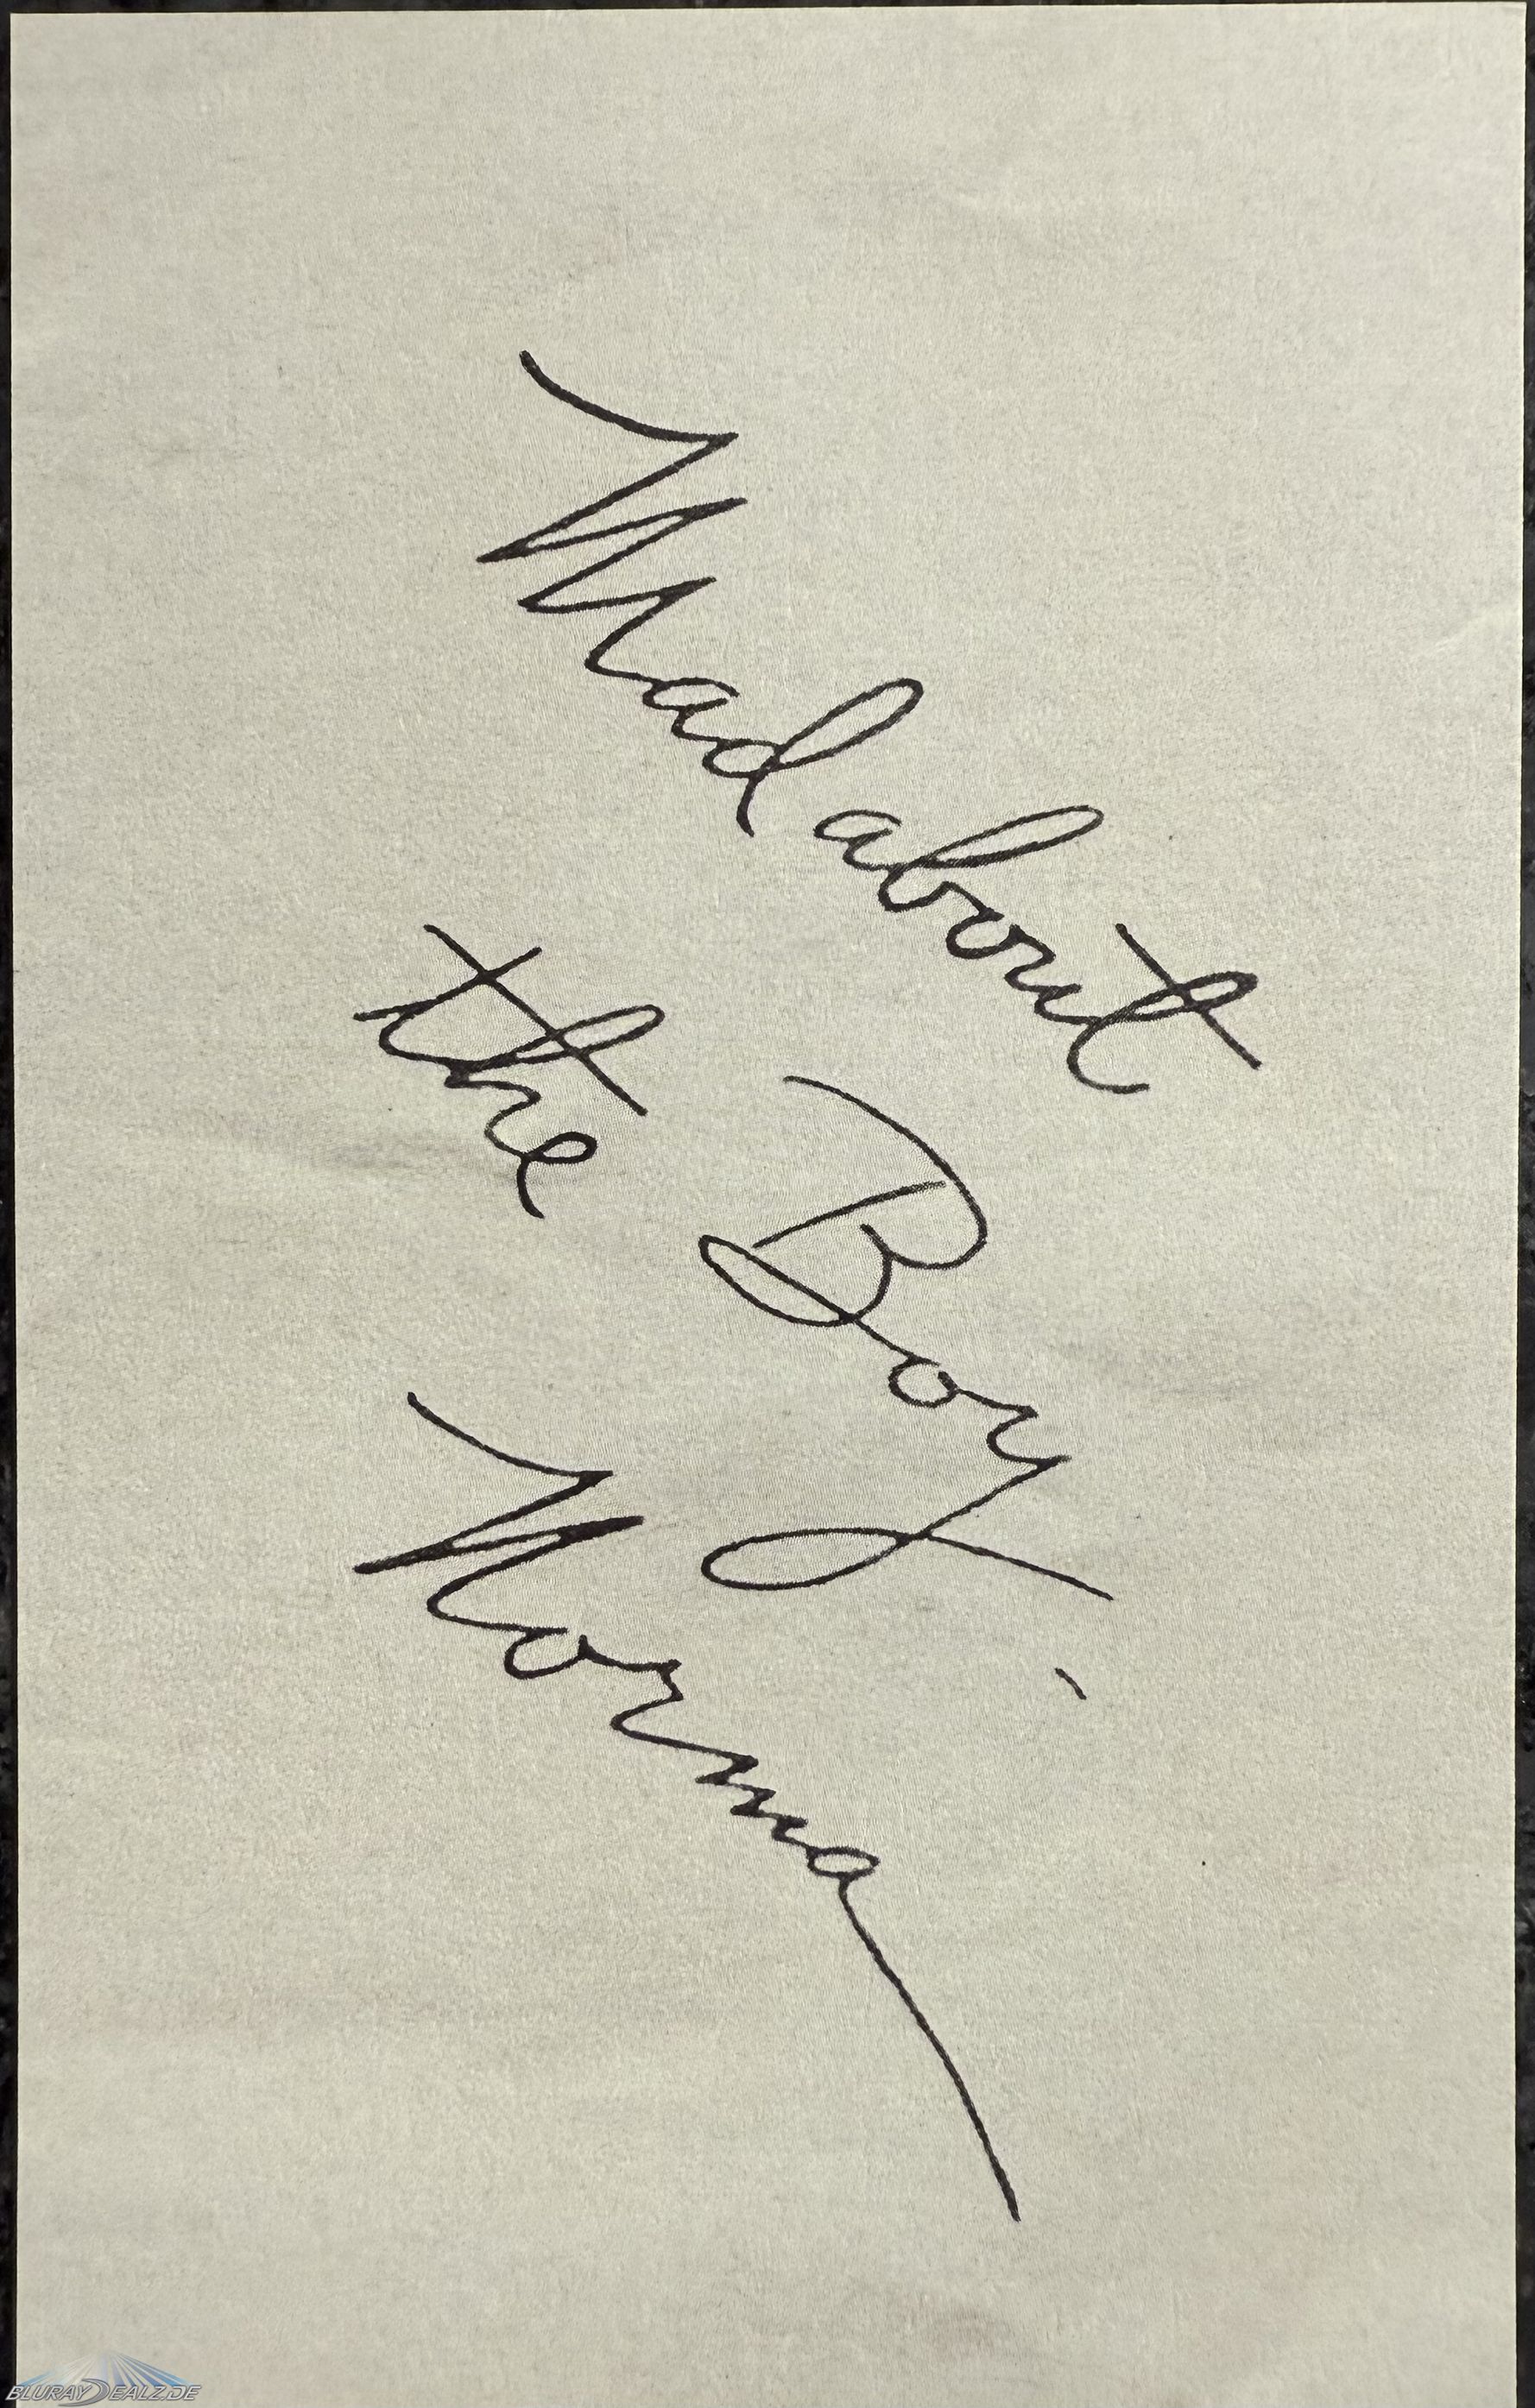 Mad about
the Boy -
Norma
BLURAYDEALZ.DE